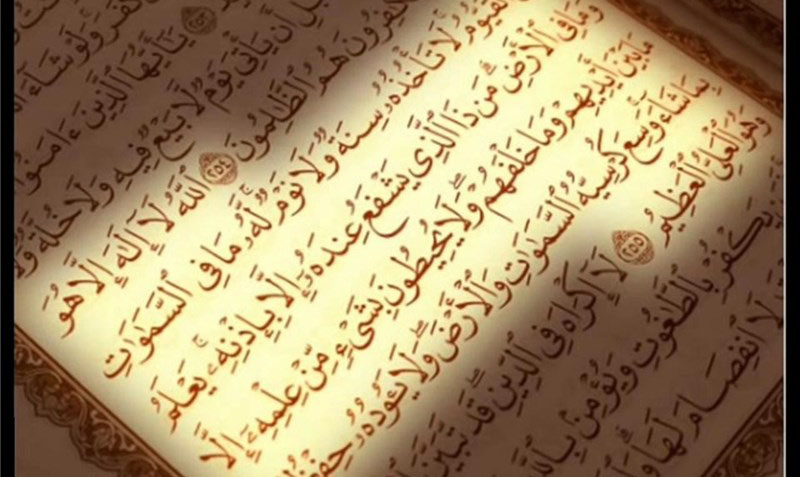 كَفَرَ وَلَوْ شَآءَ
٢٥٣ يَٰٓأَيُّهَا ٱلَّذِينَ ءَامَنُوٓا۟
أَن يَأْتِىَ يَوْمٌ لَّا بَيْعٌ فِيهِ وَلَا خُلَّةٌ وَلَا
كَٰفِرُونَ هُمُ ٱلظَّٰلِمُونَ ٢٥٤ ٱللَّهُ لَآ إِلَٰهَ إِلَّا هُوَ
ٱلْقَيُّومُ لَا تَأْخُذُهُۥ سِنَةٌ وَلَا نَوْمٌ لَّهُۥ مَا فِى ٱلسَّمَٰوَٰتِ
وَمَا فِى ٱلْأَرْضِ مَن ذَا ٱلَّذِى يَشْفَعُ عِندَهُۥٓ إِلَّا بِإِذْنِهِۦ يَعْلَمُ
مَا بَيْنَ أَيْدِيهِمْ وَمَا خَلْفَهُمْ وَلَا يُحِيطُونَ بِشَىْءٍ مِّنْ عِلْمِهِۦٓ إِلَّا
بِمَا شَآءَ وَسِعَ كُرْسِيُّهُ ٱلسَّمَٰوَٰتِ وَٱلْأَرْضَ وَلَا يَـُٔودُهُۥ
وَهُوَ ٱلْعَلِىُّ ٱلْعَظِيمُ ٢٥٥ لَآ إِكْرَاهَ فِى ٱلدِّينِ قَد تَّبَيَّنَ
يَكْفُرْ بِٱلطَّٰغُوتِ وَيُؤْمِنۢ بِٱللَّهِ
لَا ٱنفِصَامَ لَهَا